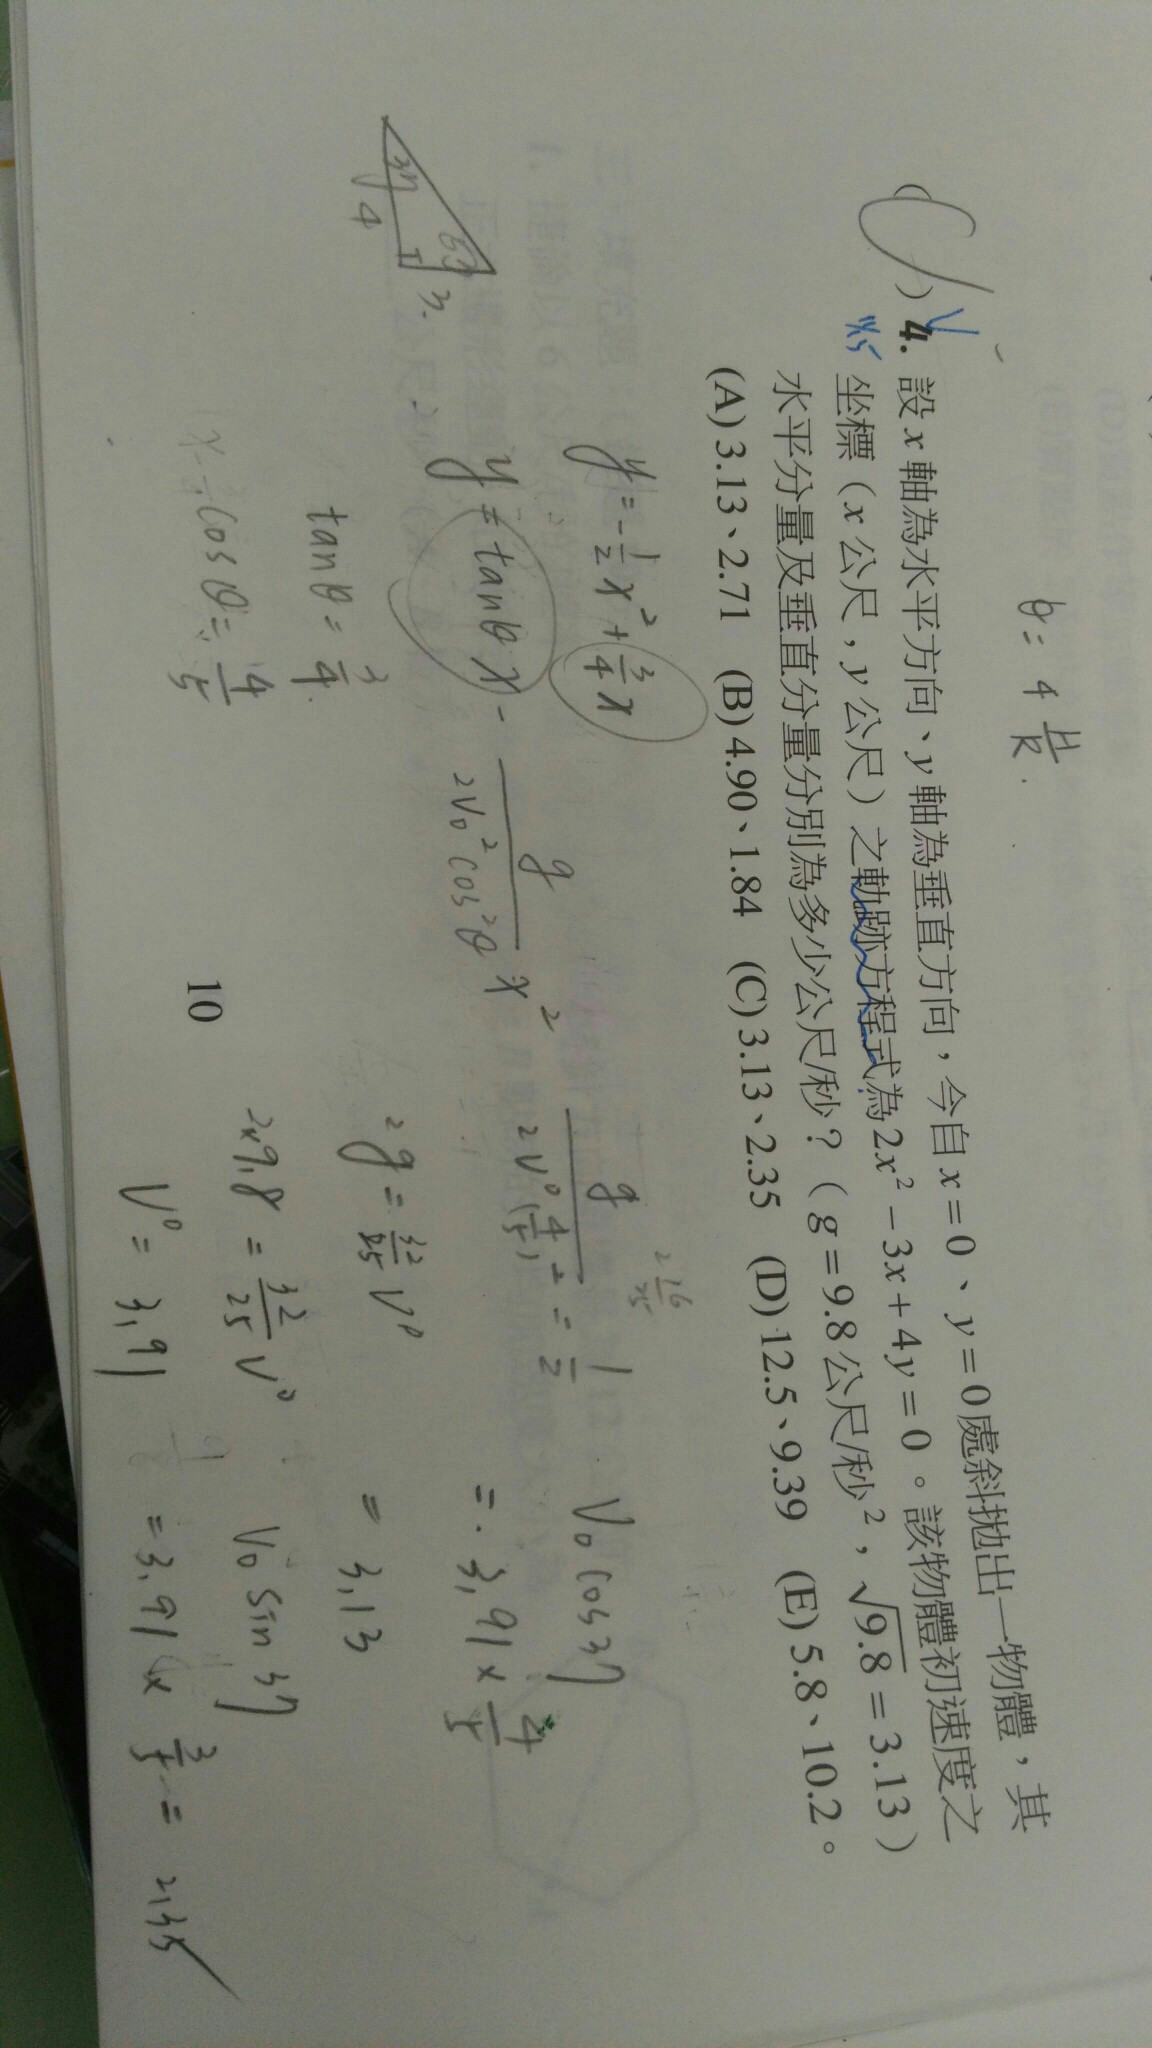 θ = 4 H/R .
( C ) 4. 設 x 軸為水平方向、y 軸為垂直方向，今自 x = 0、y = 0 處斜拋出一物體，其
坐標（x 公尺，y 公尺）之軌跡方程式為 2x² − 3x + 4y = 0。該物體初速度之
水平分量及垂直分量分別為多少公尺/秒？（g = 9.8 公尺/秒²，√9.8 = 3.13）
(A) 3.13、2.71 (B) 4.90、1.84 (C) 3.13、2.35 (D) 12.5、9.39 (E) 5.8、10.2。
y = -1/2 x² + 3/4 x
y = tanθ x - g/(2V₀²cos²θ) x²
tanθ = 3/4.
cosθ = 4/5
37 53 3. 4
2 16/25
g/(2V₀(4/5)²) = 1/2
2g = 32/25 V₀
2×9.8 = 32/25 V₀
V₀ = 3.91
V₀ cos37
= 3.91 × 4/5
= 3.13
V₀ sin 37
= 3.91 × 3/5 = 2.35
10